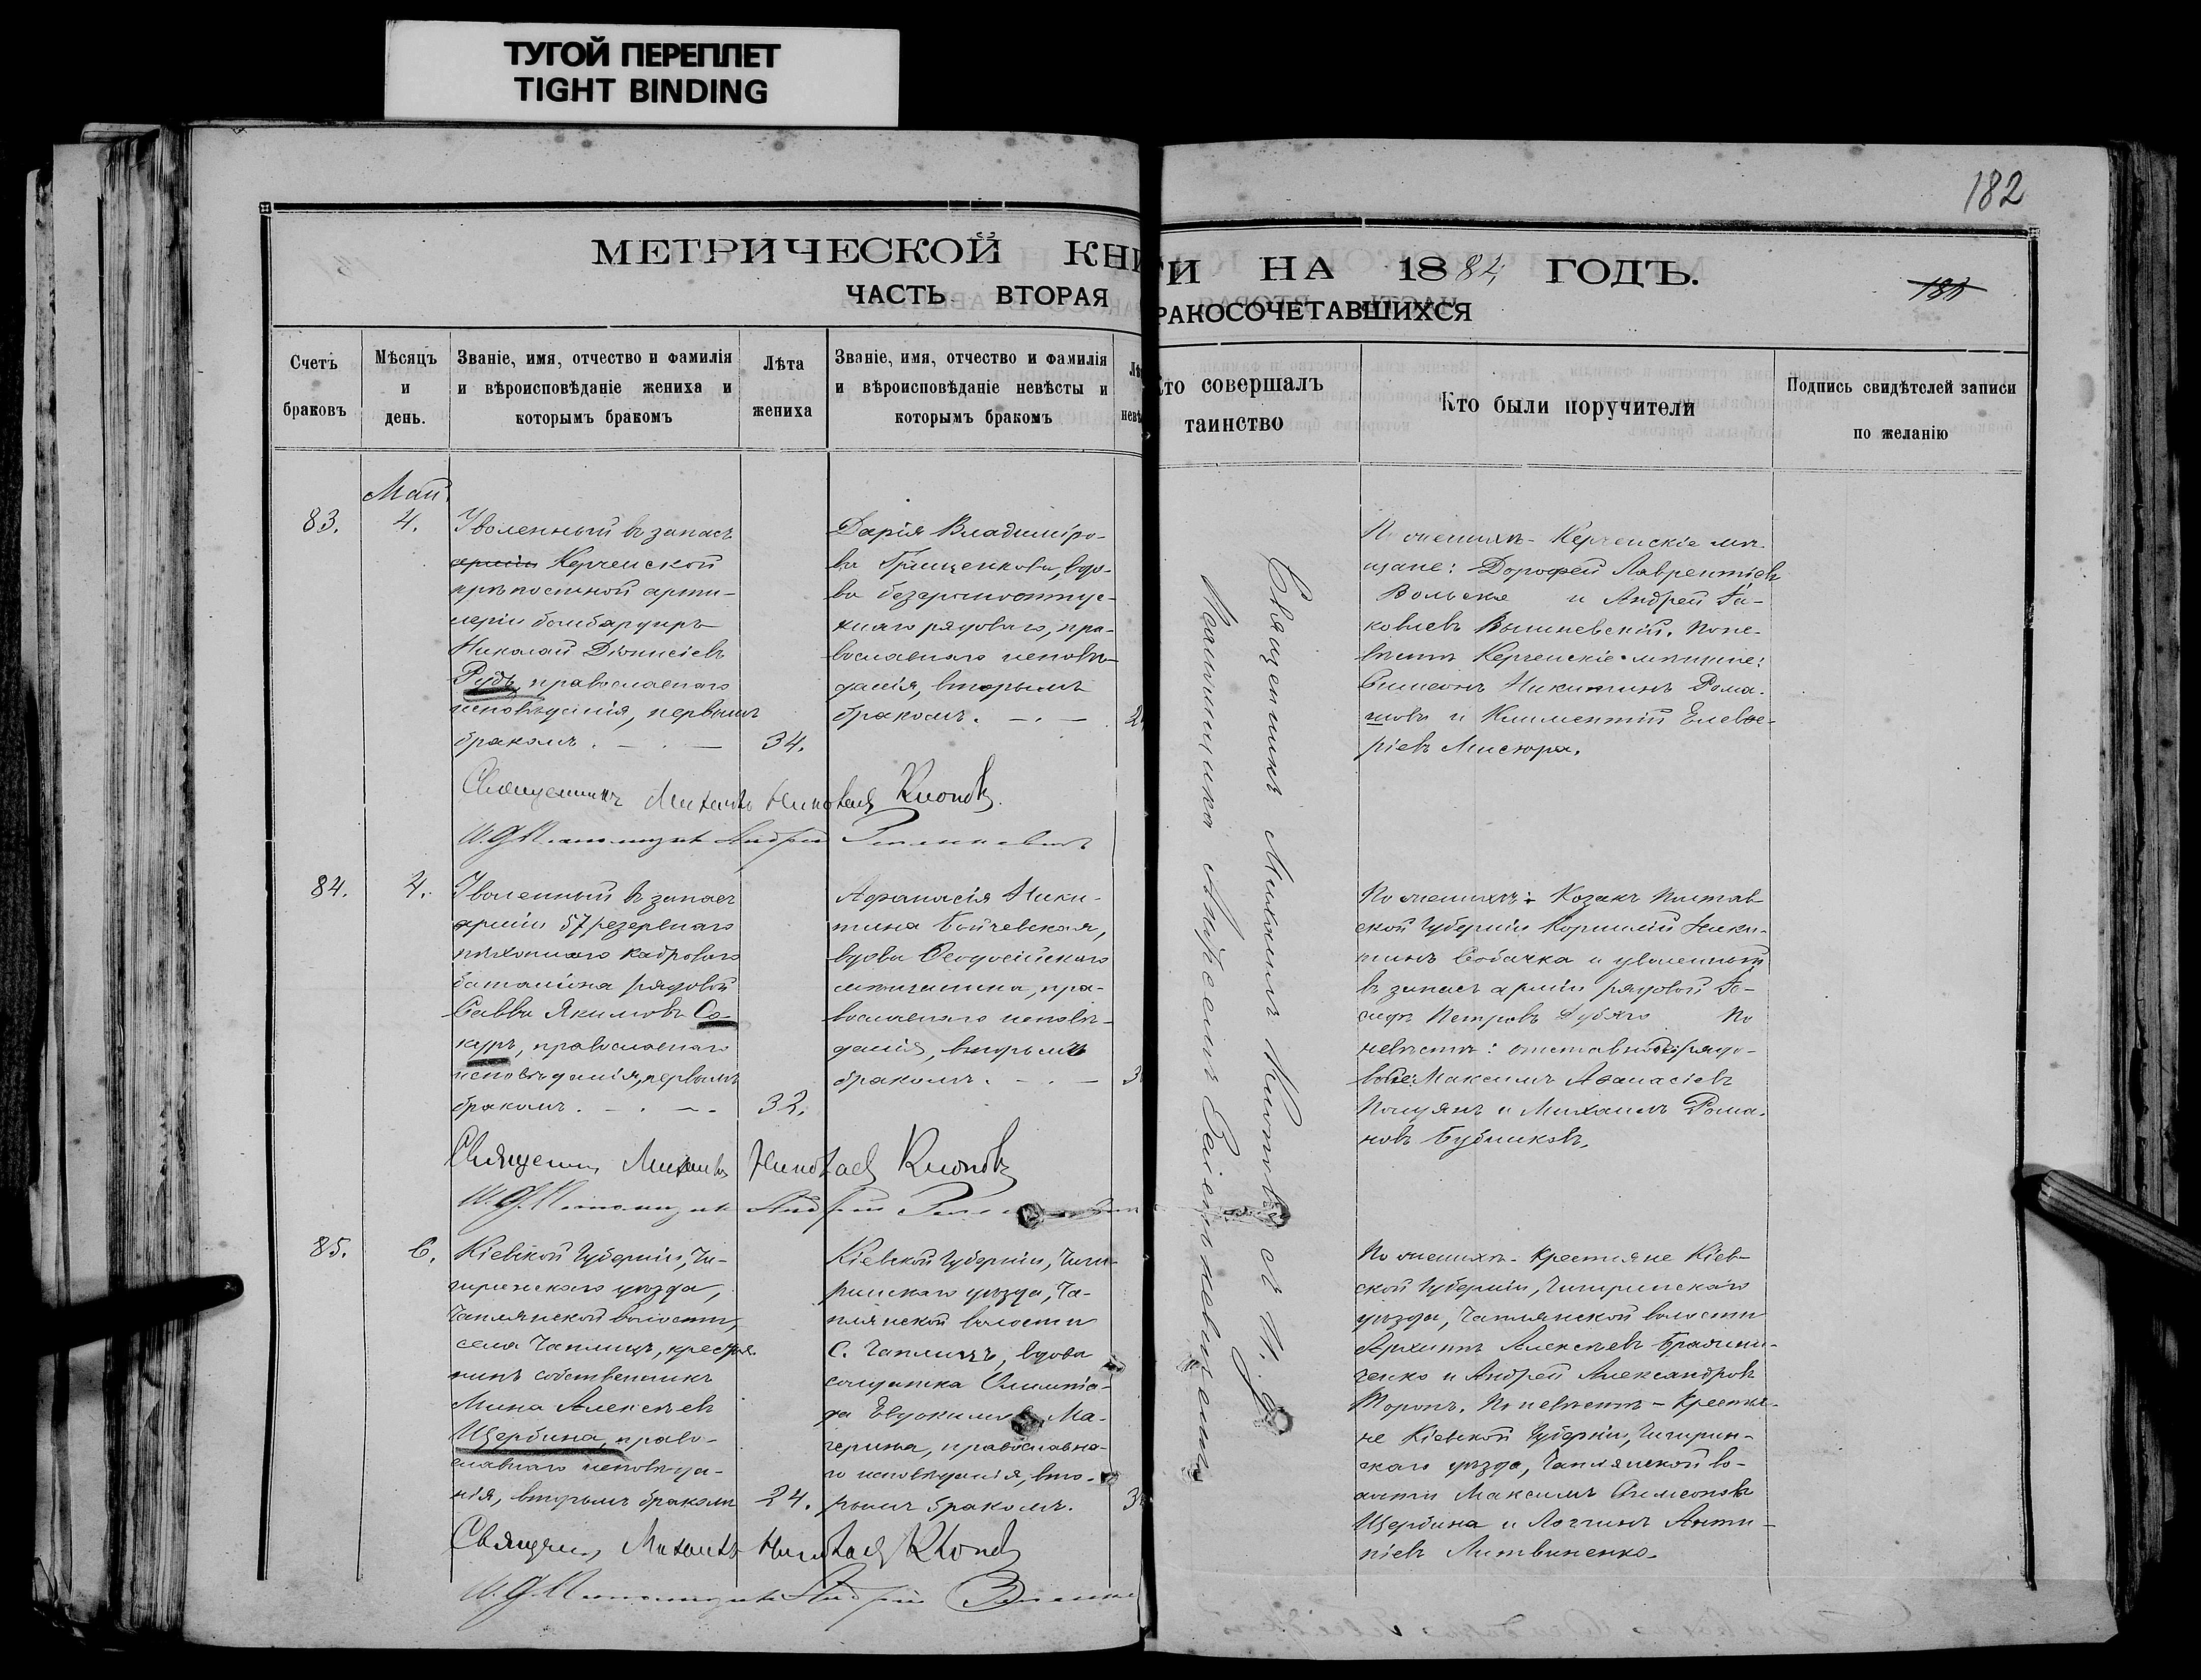 ТУГОЙ ПЕРЕПЛЕТ
TIGHT BINDING
182
МЕТРИЧЕСКОЙ КНИ
ГИ НА 1884 ГОДЪ.
181
ЧАСТЬ ВТОРАЯ
РАКОСОЧЕТАВШИХСЯ
Счетъ
браковъ
Мѣсяцъ
и
день.
Званіе, имя, отчество и фамилія
и вѣроисповѣданіе жениха и
которымъ бракомъ
Лѣта
жениха
Званіе, имя, отчество и фамилія
и вѣроисповѣданіе невѣсты и
которымъ бракомъ
Лѣ
невѣ
то совершалъ
таинство
Кто были поручители
Подпись свидѣтелей записи
по желанію
Май
83.
4.
Уволенный въ запасъ
арміи Керченской
крѣпостной арти-
леріи бомбардиръ
Николай Діонисіевъ
Рудь, православнаго
исповѣданія, первымъ
бракомъ.
34.
Дарія Владиміро-
ва Грищенкова, вдо-
ва безсрочноотпус-
кнаго рядоваго, пра-
вославнаго исповѣ-
данія, вторымъ
бракомъ.
2
По женихѣ - Керченскіе мѣ-
щане: Дорофей Лаврентіевъ
Вольскя и Андрей Іа-
ковлевъ Вышневскій. По не-
вѣстѣ Керченскіе мѣщане:
Симеонъ Никитинъ Рома-
новъ и Климентій Елевѳе-
ріевъ Мисюра.
Священникъ Михаилъ Николаев Клоповъ
И. Д. Псаломщика Андрей
84.
4.
Уволенный въ запасъ
арміи 57 резервнаго
пѣхотнаго кадроваго
баталіона рядовой
Савва Якимовъ Со-
куръ, православнаго
исповѣданія, первымъ
бракомъ.
32.
Афанасія Ники-
тина Бойчевская,
вдова Ѳеодосійскаго
мѣщанина, пра-
вославнаго исповѣ-
данія, вторымъ
бракомъ.
3
По женихѣ: Козакъ Полтав-
ской Губерніи Корнилій Ники-
тинъ Собачка и уволенный
въ запасъ арміи рядовой Іо-
сифъ Петровъ По
невѣстѣ: отставные рядо-
вые: Максимъ Аѳанасіевъ
и Михаилъ Рома-
новъ Бубликовъ.
Священникъ Михаилъ Николаев Клоповъ
И. Д. Псаломщика Андрей
85.
6.
Кіевской Губерніи, Чи-
гиринскаго уѣзда,
Чаплинской волости,
села Чаплищъ, крестья-
нинъ собственникъ
Мина Алексѣевъ
Щербина, право-
славнаго исповѣда-
нія, вторымъ бракомъ
24.
Кіевской Губерніи, Чиги-
ринскаго уѣзда, Ча-
плинской волости
с. Чаплищъ, вдова
солдатка Олимпіа-
да Евдокимова Ма-
черина, православна-
го исповѣданія, вто-
рымъ бракомъ.
3
По женихѣ - Крестьяне Кіев-
ской Губерніи, Чигиринскаго
уѣзда, Чаплинской волости
Архипъ Алексѣевъ
и Андрей Александровъ
По невѣстѣ - Крестья-
не Кіевской Губерніи, Чигирин-
скаго уѣзда, Чаплинской во-
лости Максимъ Симеоновъ
Щербина и Логгинъ Анти-
піевъ Литвиненко.
Священ. Михаилъ Николаев Клоповъ
И. Д. Псаломщика Андрей
Священникъ Михаилъ Клоповъ съ И. Д.
Псаломщика Андреемъ